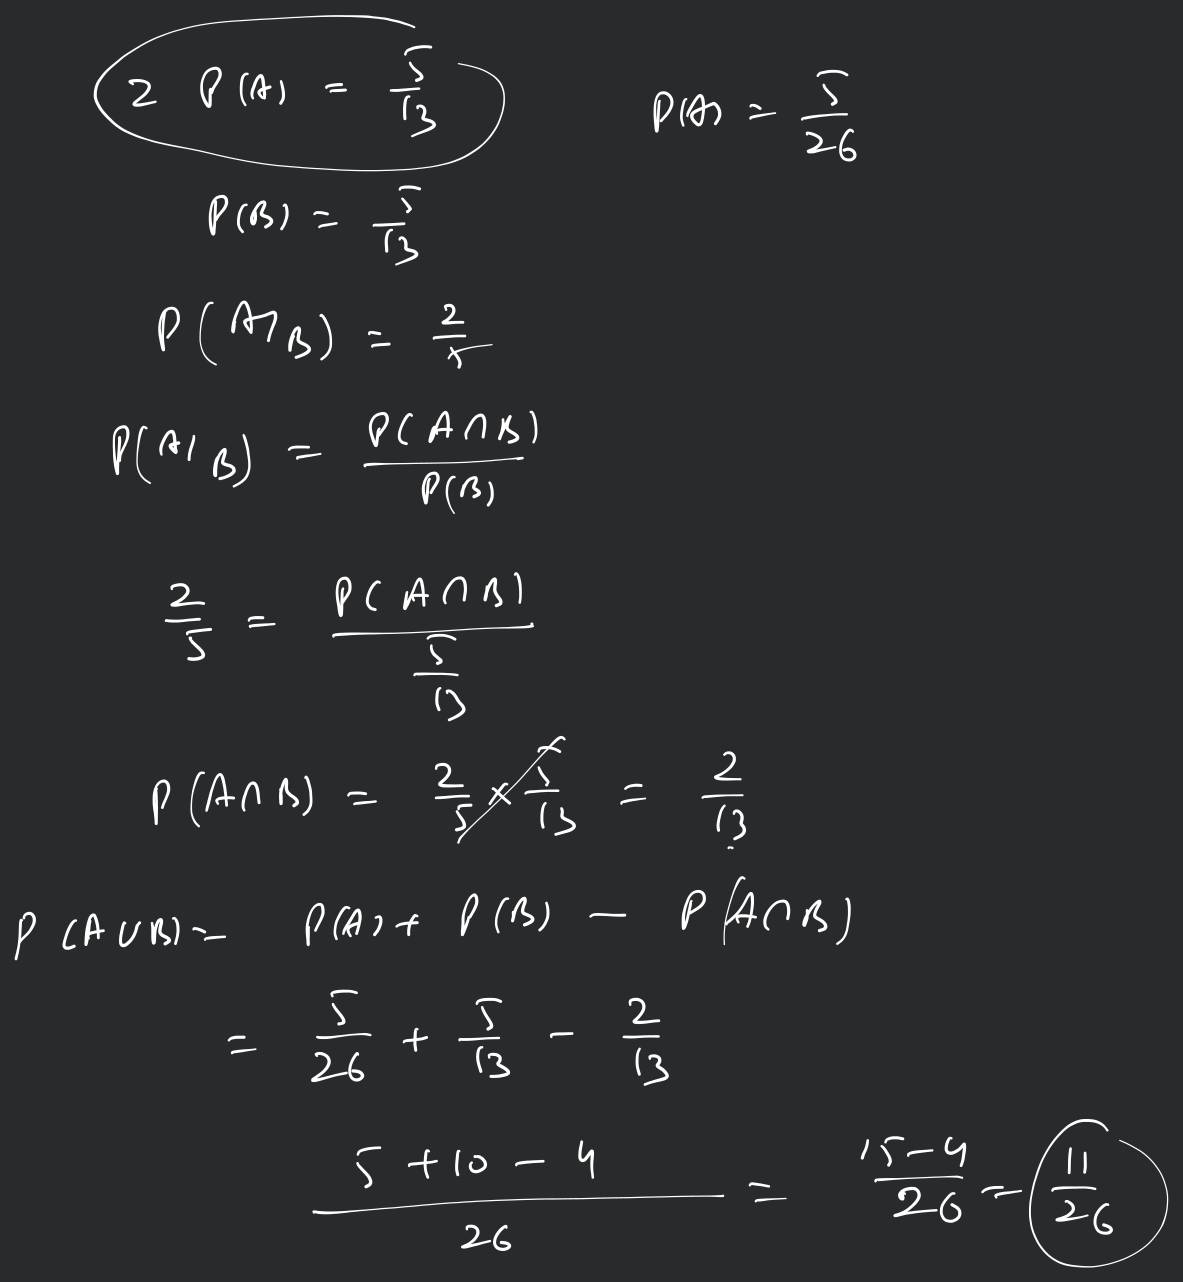 2 P(A) = 5/13    P(A) = 5/26
P(B) = 5/13
P(A|B) = 2/5
P(A|B) = P(A∩B)/P(B)
2/5 = P(A∩B)/(5/13)
P(A∩B) = 2/5 × 5/13 = 2/13
P(A∪B) = P(A) + P(B) − P(A∩B)
= 5/26 + 5/13 − 2/13
(5 + 10 − 4)/26 = (15−4)/26 = 11/26